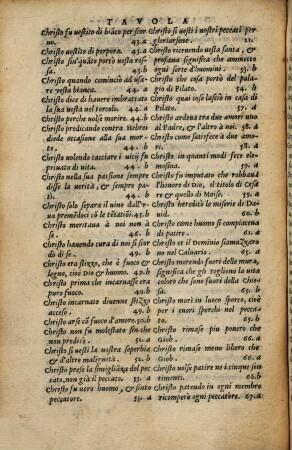 TAVOLA
Christo fu vestito di biãco per scor
no. 43.a
Christo vestito di porpora. 43.a
Christo fin' quãto portò vesta ros
sa. 43.b
Christo quando cominciò ad usar
vesta bianca. 44.a
Christo dice di havere imbrattato
la sua vesta nel torcolo. 44.a
Christo perche volse morire. 44.b
Christo predicando contra Hebrei
diede occasione alla sua mor-
te. 44.b
Christo volendo cacciare i vitij fu
privato di vita. 44.b
Christo nella sua passione sempre
disse la verità, & sempre pa-
tì. 44.b
Christo solo separa il vino dall'
45.b
Christo meritava à noi non à
se. 49.b
Christo havendo cura di noi si scor
dò di se. 49.b
Christo era stizzo, che è fuoco &
legno, cioè Dio & huomo. 49.b
Christo prima che incarnasse era
puro fuoco. 49.b
Christo incarnato divenne stizzo
acceso. 49.b
Christo arse cõ fuoco d'amore. 50.b
Christo non fu molestato fin che
non predicò. 51.a
Christo si vestì la nostra superbia
& d'altre malignità. 52.b
Christo prese la simiglianza del pec
cato, non già il peccato. 53.a
Christo fu vero huomo, & finto
peccatore. 53.a
Christo si vestì i nostri peccati per
gloriarsene. 53.
Christo ricevendo vesta santa, &
profana significa che ammette
ogni sorte d'huomini. 53.b
Christo che cosa portò del pala-
gio di Pilato. 54.b
Christo quai cose lasciò in casa di
Pilato. 55.a
Christo ardena tra due amori uno
al Padre, & l'altro à noi. 58.a
Christo come satisfece à due amo-
ri. 58.a
Christo in quanti modi fece ele-
mosina.
Christo fu imputato che robbava
l'honore di Dio, il titolo di Cesa
re & quello di Mose.
Christo hereditò le miserie di Da
vid. 60.b
Christo come huomo si compiaceva
di patire. 61.a
Christo et il Demonio s'amazzero
no nel Calvario.
Christo morendo fuori delle mura,
significa che gli togliono la vita
coloro che sono fuori della Chie
sa. 65.b
Christo morì in luoco sporco, cioè
per i cuori sporchi nel pecca-
to. 65.b
Christo rimase piu povero che
Giob. 66.a
Christo rimase meno libero che
Giob. 66.a
Christo volse patire ne i cinque sen
timenti. 66.b
Christo patendo in ogni membro
ricomperò ogni peccatore. 67.a